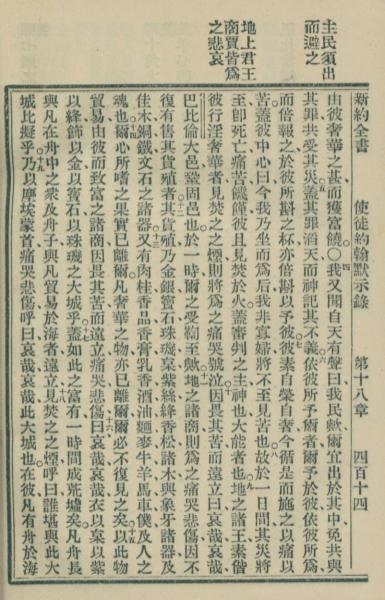 新約全書 使徒約翰默示錄 第十八章 四百十四
主民須出
而避之
地上君王
商賈皆爲
之悲哀
由彼奢華之甚而獲富饒○四我又聞自天有聲曰我民歟爾宜出於其中免共與
其罪共受其災五蓋其罪滔天而神記其不義六依彼所予爾者爾予於彼依彼所爲
而倍報之於彼所斟之杯亦倍斟以予彼七彼素自榮自奢今循是而施之以痛以
苦蓋彼中心曰今我乃坐而爲后我非寡婦將不至見苦也八故於一日間其災將
至卽死亡痛苦饑饉彼且見焚於火蓋審判之主神也大能者也九地之諸王素偕
彼行淫奢華者見焚之之煙則將爲之痛哭號泣十因畏其苦而遠立曰哀哉哀哉
巴比倫大邑鞏固邑也於一時爾之受鞫至歟十一地之諸商則爲之痛哭悲傷因不
復有售其貨殖者十二其貨殖乃金銀寶石珠璣枲紫絲絳香松諸木與象牙諸器及
佳木銅鐵文石之諸器十三又有肉桂香品香膏乳香酒油麵麥牛羊馬車僕及人之
魂也十四爾心所嗜之果實已離爾凡奢華之物亦已離爾爾必不復見之矣十五以此物
貿易由彼而致富之諸商因畏其苦而遠立痛哭悲傷十六曰哀哉哀哉衣以枲以紫
以絳飾以金以寶石以珠璣之大城乎十七蓋如此之富有一時間成荒墟矣凡舟長
與凡在舟中之衆及舟子與凡貿易於海者遠立十八見焚之之煙呼曰誰堪與此大
城比擬乎十九乃以塵埃蒙首痛哭悲傷呼曰哀哉哀哉此大城也在彼凡有舟於海